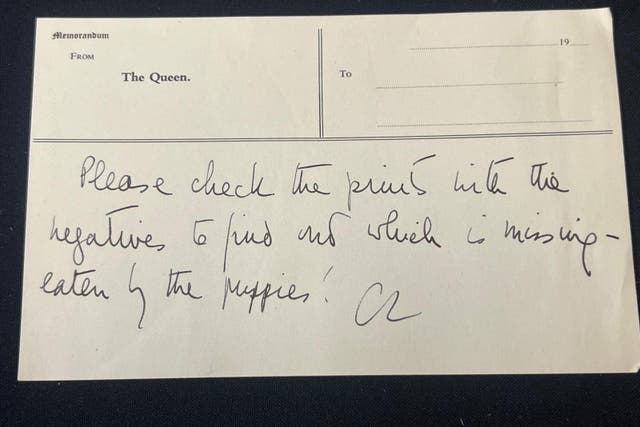 Memorandum
FROM
The Queen.
19
To
Please check the prints with the
negatives to find out which is missing -
eaten by the puppies!